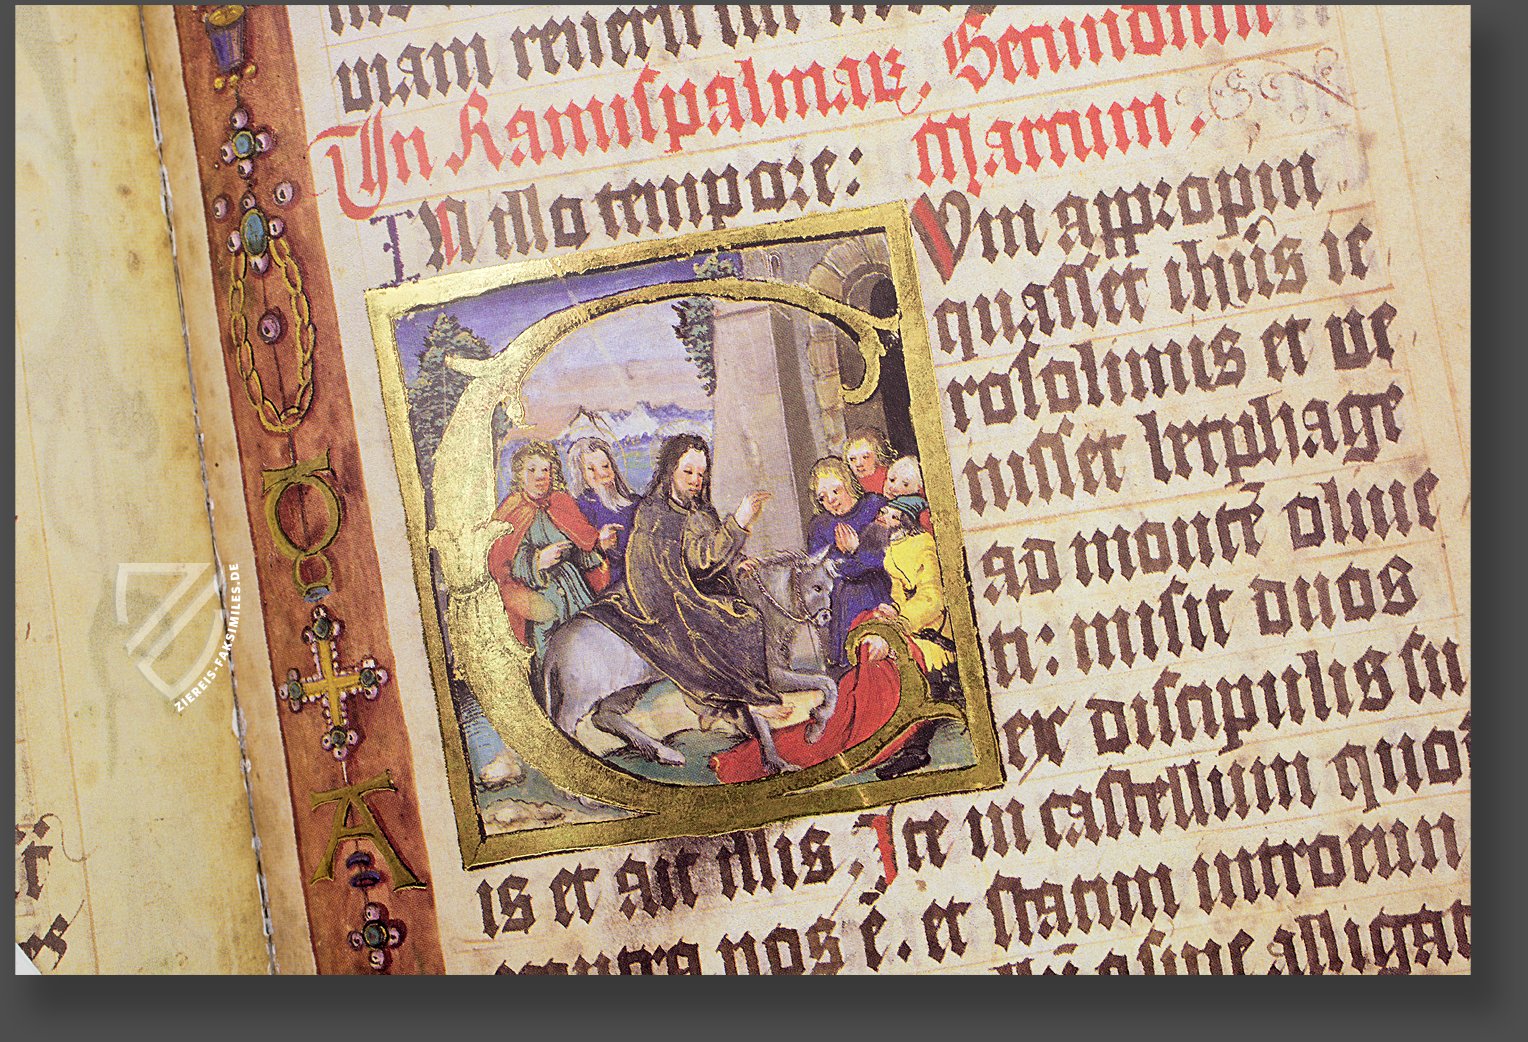 viam reuerti sunt
In Ramispalmar, Secundum
Marcum.
IN illo tempore:
Cum appropin
quasset ihūs ie
rosolimis et ve
nisset betphage
ad montē oliue
ti: misit duos
ex discipulis su
is et ait illis, Ite in castellum quod
contra uos ē. et statim introeun
asine alligat
ZIEREIS-FAKSIMILES.DE